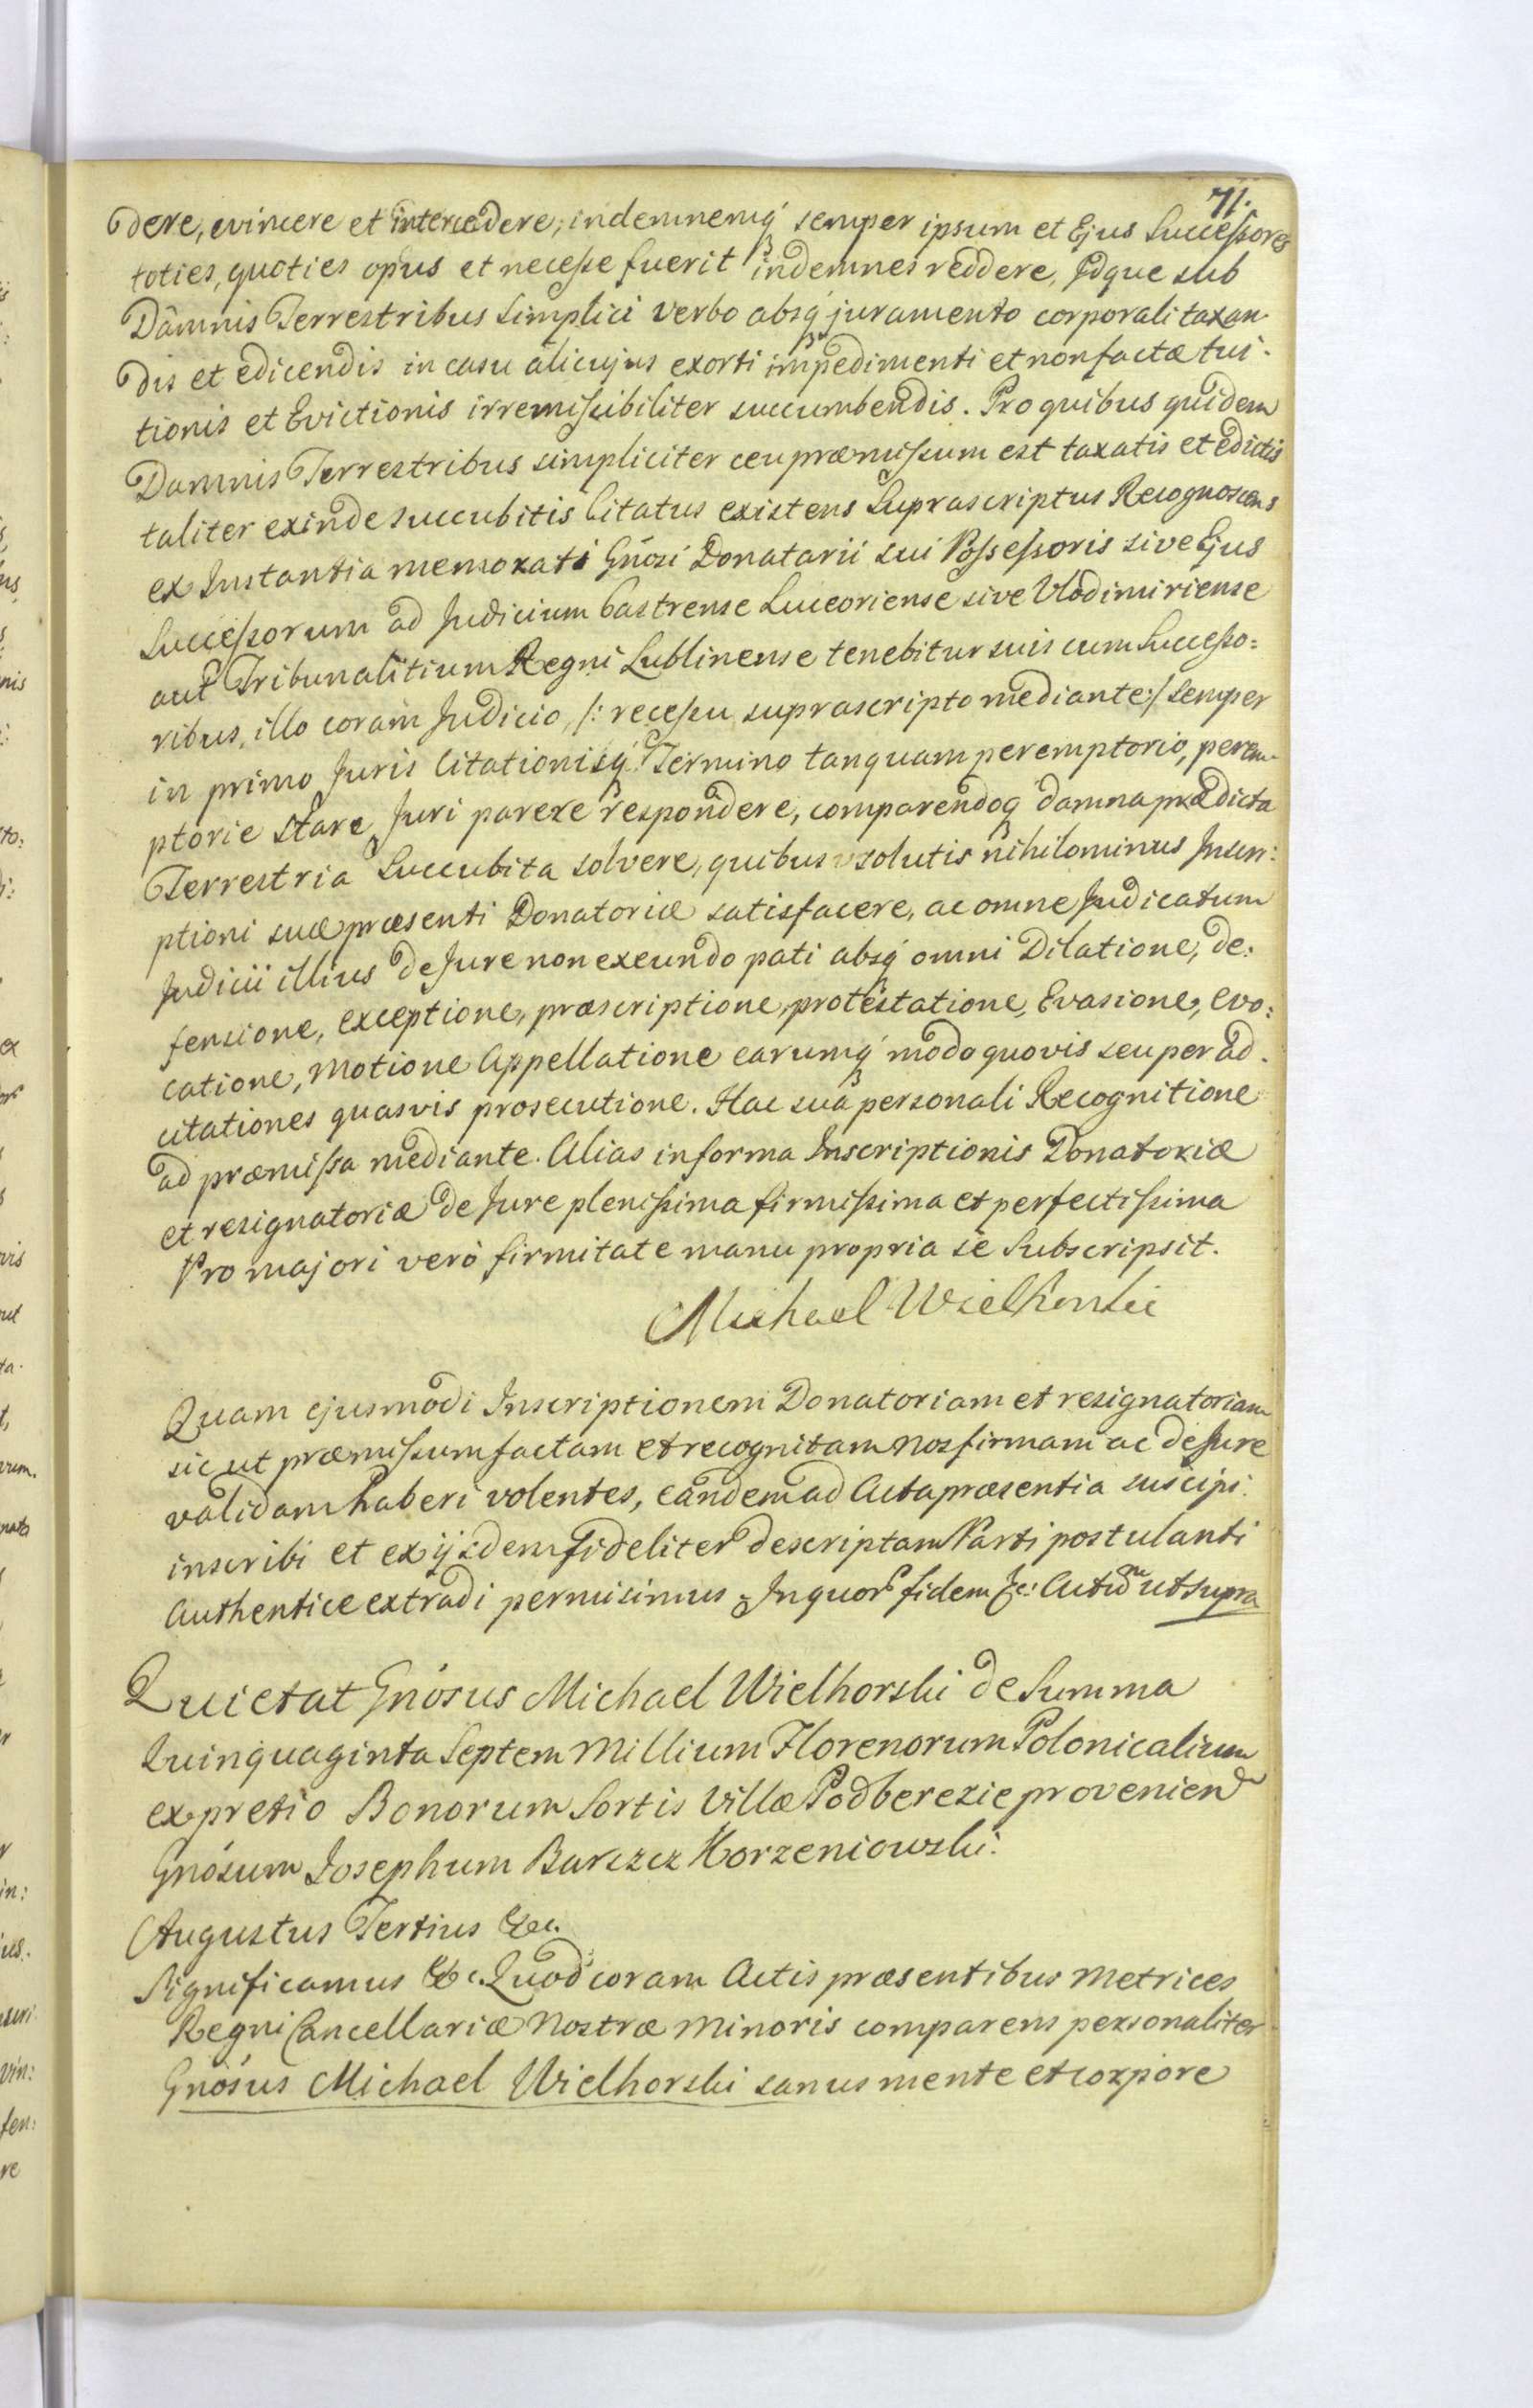 71.
dere, evincere et intercedere, indemnemq́ semper ipsum et Ejus Successores
toties, quoties opus et necesse fuerit indemnes reddere, Idque sub
Damnis Terrestribus simplici verbo absq́ juramento corporali taxan-
dis et edicendis in casu alicujus exorti impedimenti et non factæ tui-
tionis et Evictionis irremissibiliter succumbendis. Pro quibus quidem
Damnis Terrestribus simpliciter ceu præmissum est taxatis et edictis
taliter exinde succubitis Citatus existens Suprascriptus Recognoscens
ex Instantia memorati Gnősi Donatarii sui Possessoris sive Ejus
Successorum ad Judicium Castrense Luceoriense sive Vlodimiriense
aut Tribunalitium Regni Lublinense tenebitur suis cum Successo=
ribus, illo coram Judicio, /: recessu suprascripto mediante :/ semper
in primo Juris Citationisq́ Termino tanquam peremptorio, perem-
ptorie stare Juri parere respondere, comparendoq́ damna prædicta
Terrestria Succubita solvere, quibus solutis nihilominus Inscri:
ptioni suæ præsenti Donatoriæ satisfacere, ac omne Judicatum
Judicii illius de Jure non exeundo pati absq́ omni Dilatione, de:
fensione, exceptione, præscriptione, protestatione, Evasione, evo:
catione, Motione Appellatione earumq́ modo quovis seu per ad-
citationes quasvis prosecutione. Hac sua personali Recognitione
ad præmissa mediante. Alias in forma Inscriptionis Donatoriæ
et resignatoriæ de Jure plenissima firmissima et perfectissima
Pro majori verò firmitate manu propria se Subscripsit.
Michael Wielhorski
Quam ejusmodi Inscriptionem Donatoriam et resignatoriam
sic ut præmissum factam et recognitam nos firmam ac de Jure
validam haberi volentes, eandem ad Acta præsentia suscipi
inscribi et ex ijsdem fideliter descriptam Parti postulanti
Authentice extradi permisimus. In quor fidem &c: Actum ut supra
Quietat Gnősus Michael Wielhorski de Summa
Quinquaginta Septem Millium Florenorum Polonicalium
ex pretio Bonorum Sortis Villæ Podberezie provenien
Gnősum Josephum Barczcz Korzeniowski.
Augustus Tertius &c.
Significamus &c. Quod coram Actis præsentibus Metrices
Regni Cancellariæ Nostræ Minoris comparens personaliter
Gnősus Michael Wielhorski sanus mente et corpore